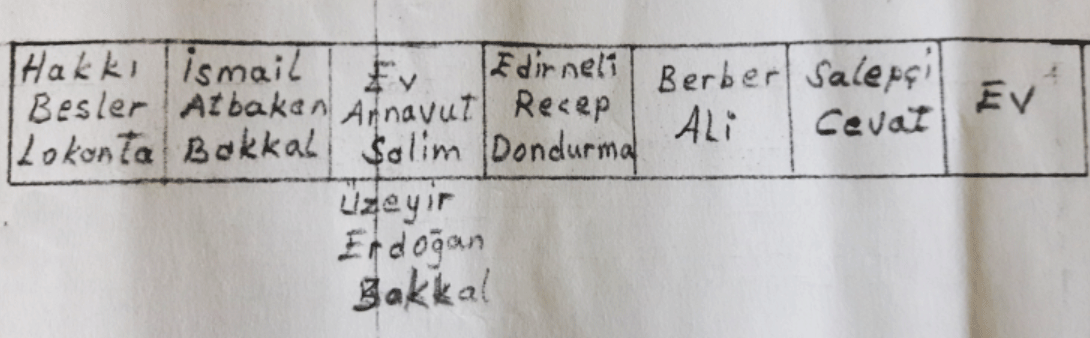 Hakkı
Besler
Lokonta
İsmail
Atbakan
Bakkal
Ev
Arnavut
Salim
Edirneli
Recep
Dondurma
Berber
Ali
Salepçi
Cevat
Ev
Üzeyir
Erdoğan
Bakkal